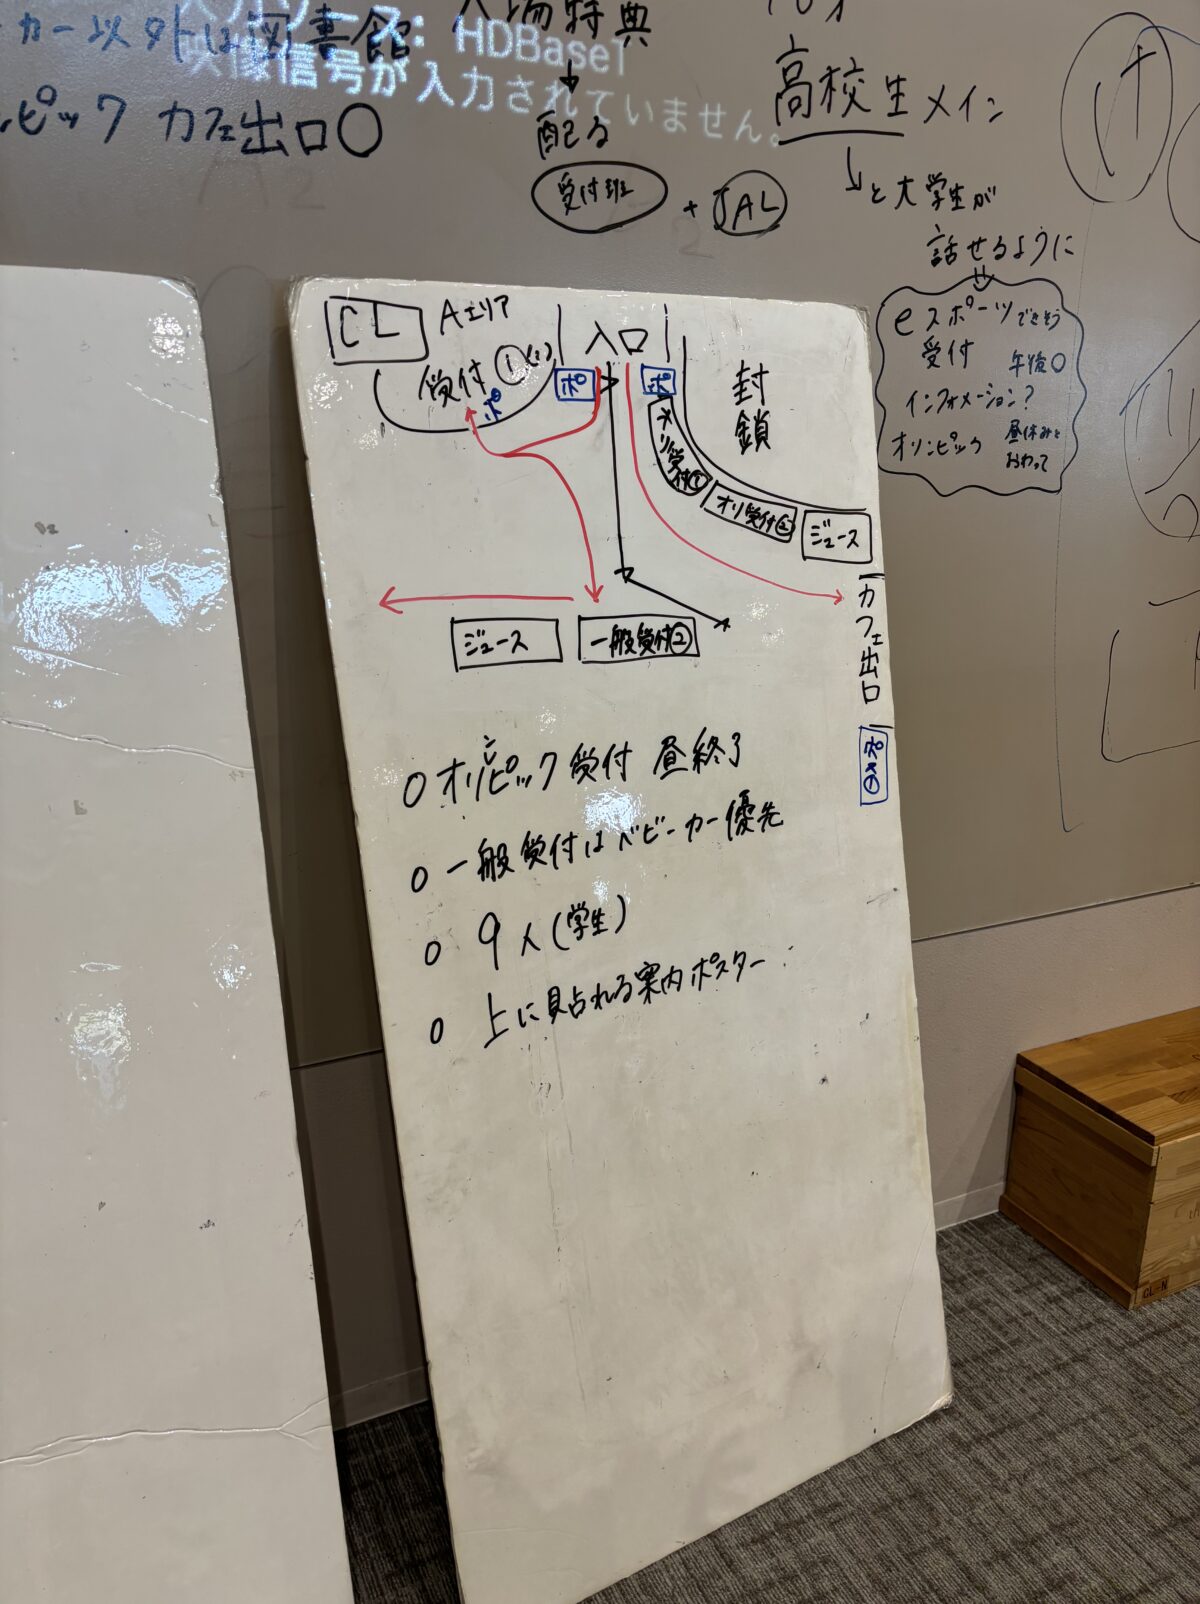 カー以外は図書館
入場特典
HDBaseT
映像信号が入力されていません。
ピック カフェ出口〇
配る
受付班
+ JAL
高校生メイン
と大学生が
話せるように
eスポーツできそう
受付 午後〇
インフォメーション?
オリンピック 昼休みと
おわって
CL
Aエリア
入口
受付①
ポ
ポ
ポ
封
鎖
オリ受付①
オリ受付②
ジュース
カフェ出口
ジュース
一般受付②
〇 オリンピック受付 昼終了
〇 一般受付はベビーカー優先
〇 9人(学生)
〇 上に貼れる案内ポスター
CL-N